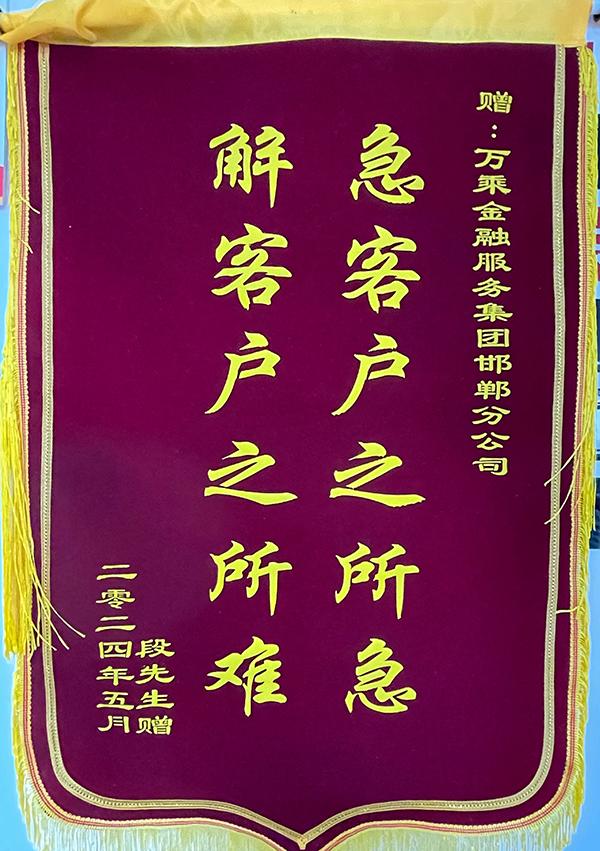 赠：万乘金融服务集团邯郸分公司
急客户之所急
解客户之所难
段先生赠
二零二四年五月